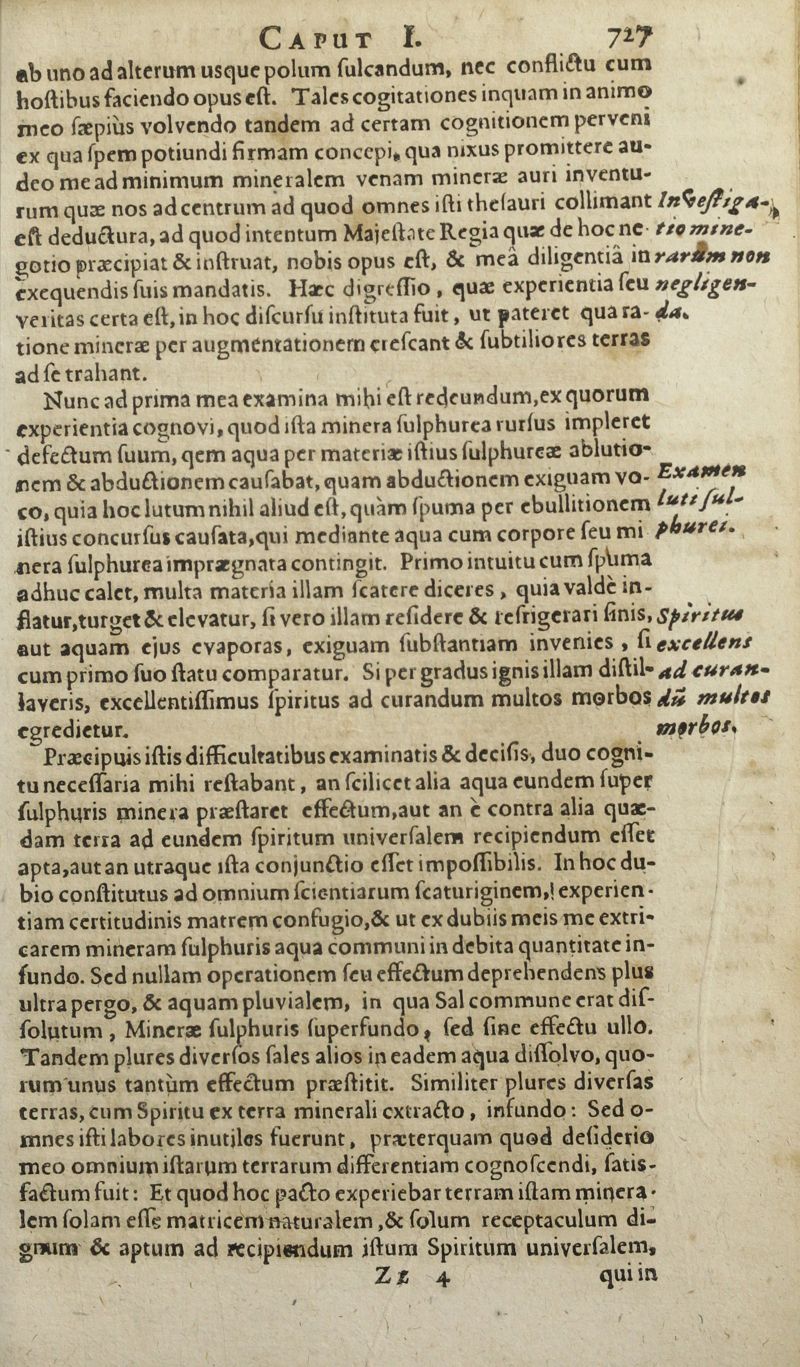 CAPUT I. 727
ab uno ad alterum usque polum ſulcandum, nec conflictu cum
hoſtibus faciendo opus eſt. Tales cogitationes inquam in animo
meo ſæpiùs volvendo tandem ad certam cognitionem perveni
ex qua ſpem potiundi firmam concepi, qua nixus promittere au-
deo me ad minimum mineralem venam mineræ auri inventu-
rum quæ nos ad centrum ad quod omnes iſti theſauri collimant
eſt deductura, ad quod intentum Majeſtate Regia quæ de hoc ne-
gotio præcipiat & inſtruat, nobis opus eſt, & meâ diligentiâ in
exequendis ſuis mandatis. Hæc digreſſio, quæ experientia ſeu
veritas certa eſt, in hoc diſcurſu inſtituta fuit, ut pateret qua ra-
tione mineræ per augmentationem creſcant & ſubtiliores terras
ad ſe trahant.
Inveſtiga-
tio mine-
rarum non
negligen-
da.
Nunc ad prima mea examina mihi eſt redeundum, ex quorum
experientia cognovi, quod iſta minera ſulphurea rurſus impleret
defectum ſuum, qem aqua per materiæ iſtius ſulphureæ ablutio-
nem & abductionem cauſabat, quam abductionem exiguam vo-
co, quia hoc lutum nihil aliud eſt, quàm ſpuma per ebullitionem
iſtius concurſus cauſata, qui mediante aqua cum corpore ſeu mi
nera ſulphurea imprægnata contingit. Primo intuitu cum ſpuma
adhuc calet, multa materia illam ſcatere diceres, quia valdè in-
flatur, turget & elevatur, ſi vero illam reſidere & refrigerari ſinis,
aut aquam ejus evaporas, exiguam ſubſtantiam invenies, ſi
cum primo ſuo ſtatu comparatur. Si per gradus ignis illam diſtil-
laveris, excellentiſſimus ſpiritus ad curandum multos morbos
egredietur.
Examen
luti ſul-
phurei.
Spiritus
excellens
ad curan-
dũ multos
morbos.
Præcipuis iſtis difficultatibus examinatis & deciſis, duo cogni-
tu neceſſaria mihi reſtabant, an ſcilicet alia aqua eundem ſuper
ſulphuris minera præſtaret effectum, aut an è contra alia quæ-
dam terra ad eundem ſpiritum univerſalem recipiendum eſſet
apta, aut an utraque iſta conjunctio eſſet impoſſibilis. In hoc du-
bio conſtitutus ad omnium ſcientiarum ſcaturiginem, experien-
tiam certitudinis matrem confugio, & ut ex dubiis meis me extri-
carem mineram ſulphuris aqua communi in debita quantitate in-
fundo. Sed nullam operationem ſeu effectum deprehendens plus
ultra pergo, & aquam pluvialem, in qua Sal commune erat diſ-
ſolutum, Mineræ ſulphuris ſuperfundo, ſed ſine effectu ullo.
Tandem plures diverſos ſales alios in eadem aqua diſſolvo, quo-
rum unus tantùm effectum præſtitit. Similiter plures diverſas
terras, cum Spiritu ex terra minerali extracto, infundo: Sed o-
mnes iſti labores inutiles fuerunt, præterquam quod deſiderio
meo omnium iſtarum terrarum differentiam cognoſcendi, ſatis-
factum fuit: Et quod hoc pacto experiebar terram iſtam minera-
lem ſolam eſſe matricem naturalem, & ſolum receptaculum di-
gnum & aptum ad recipiendum iſtum Spiritum univerſalem,
Zz 4 qui in